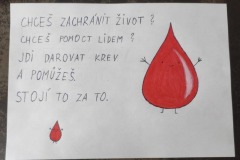 CHCEŠ ZACHRÁNIT ŽIVOT?
CHCEŠ POMOCT LIDEM?
JDI DAROVAT KREV
A POMŮŽEŠ.
STOJÍ TO ZA TO.